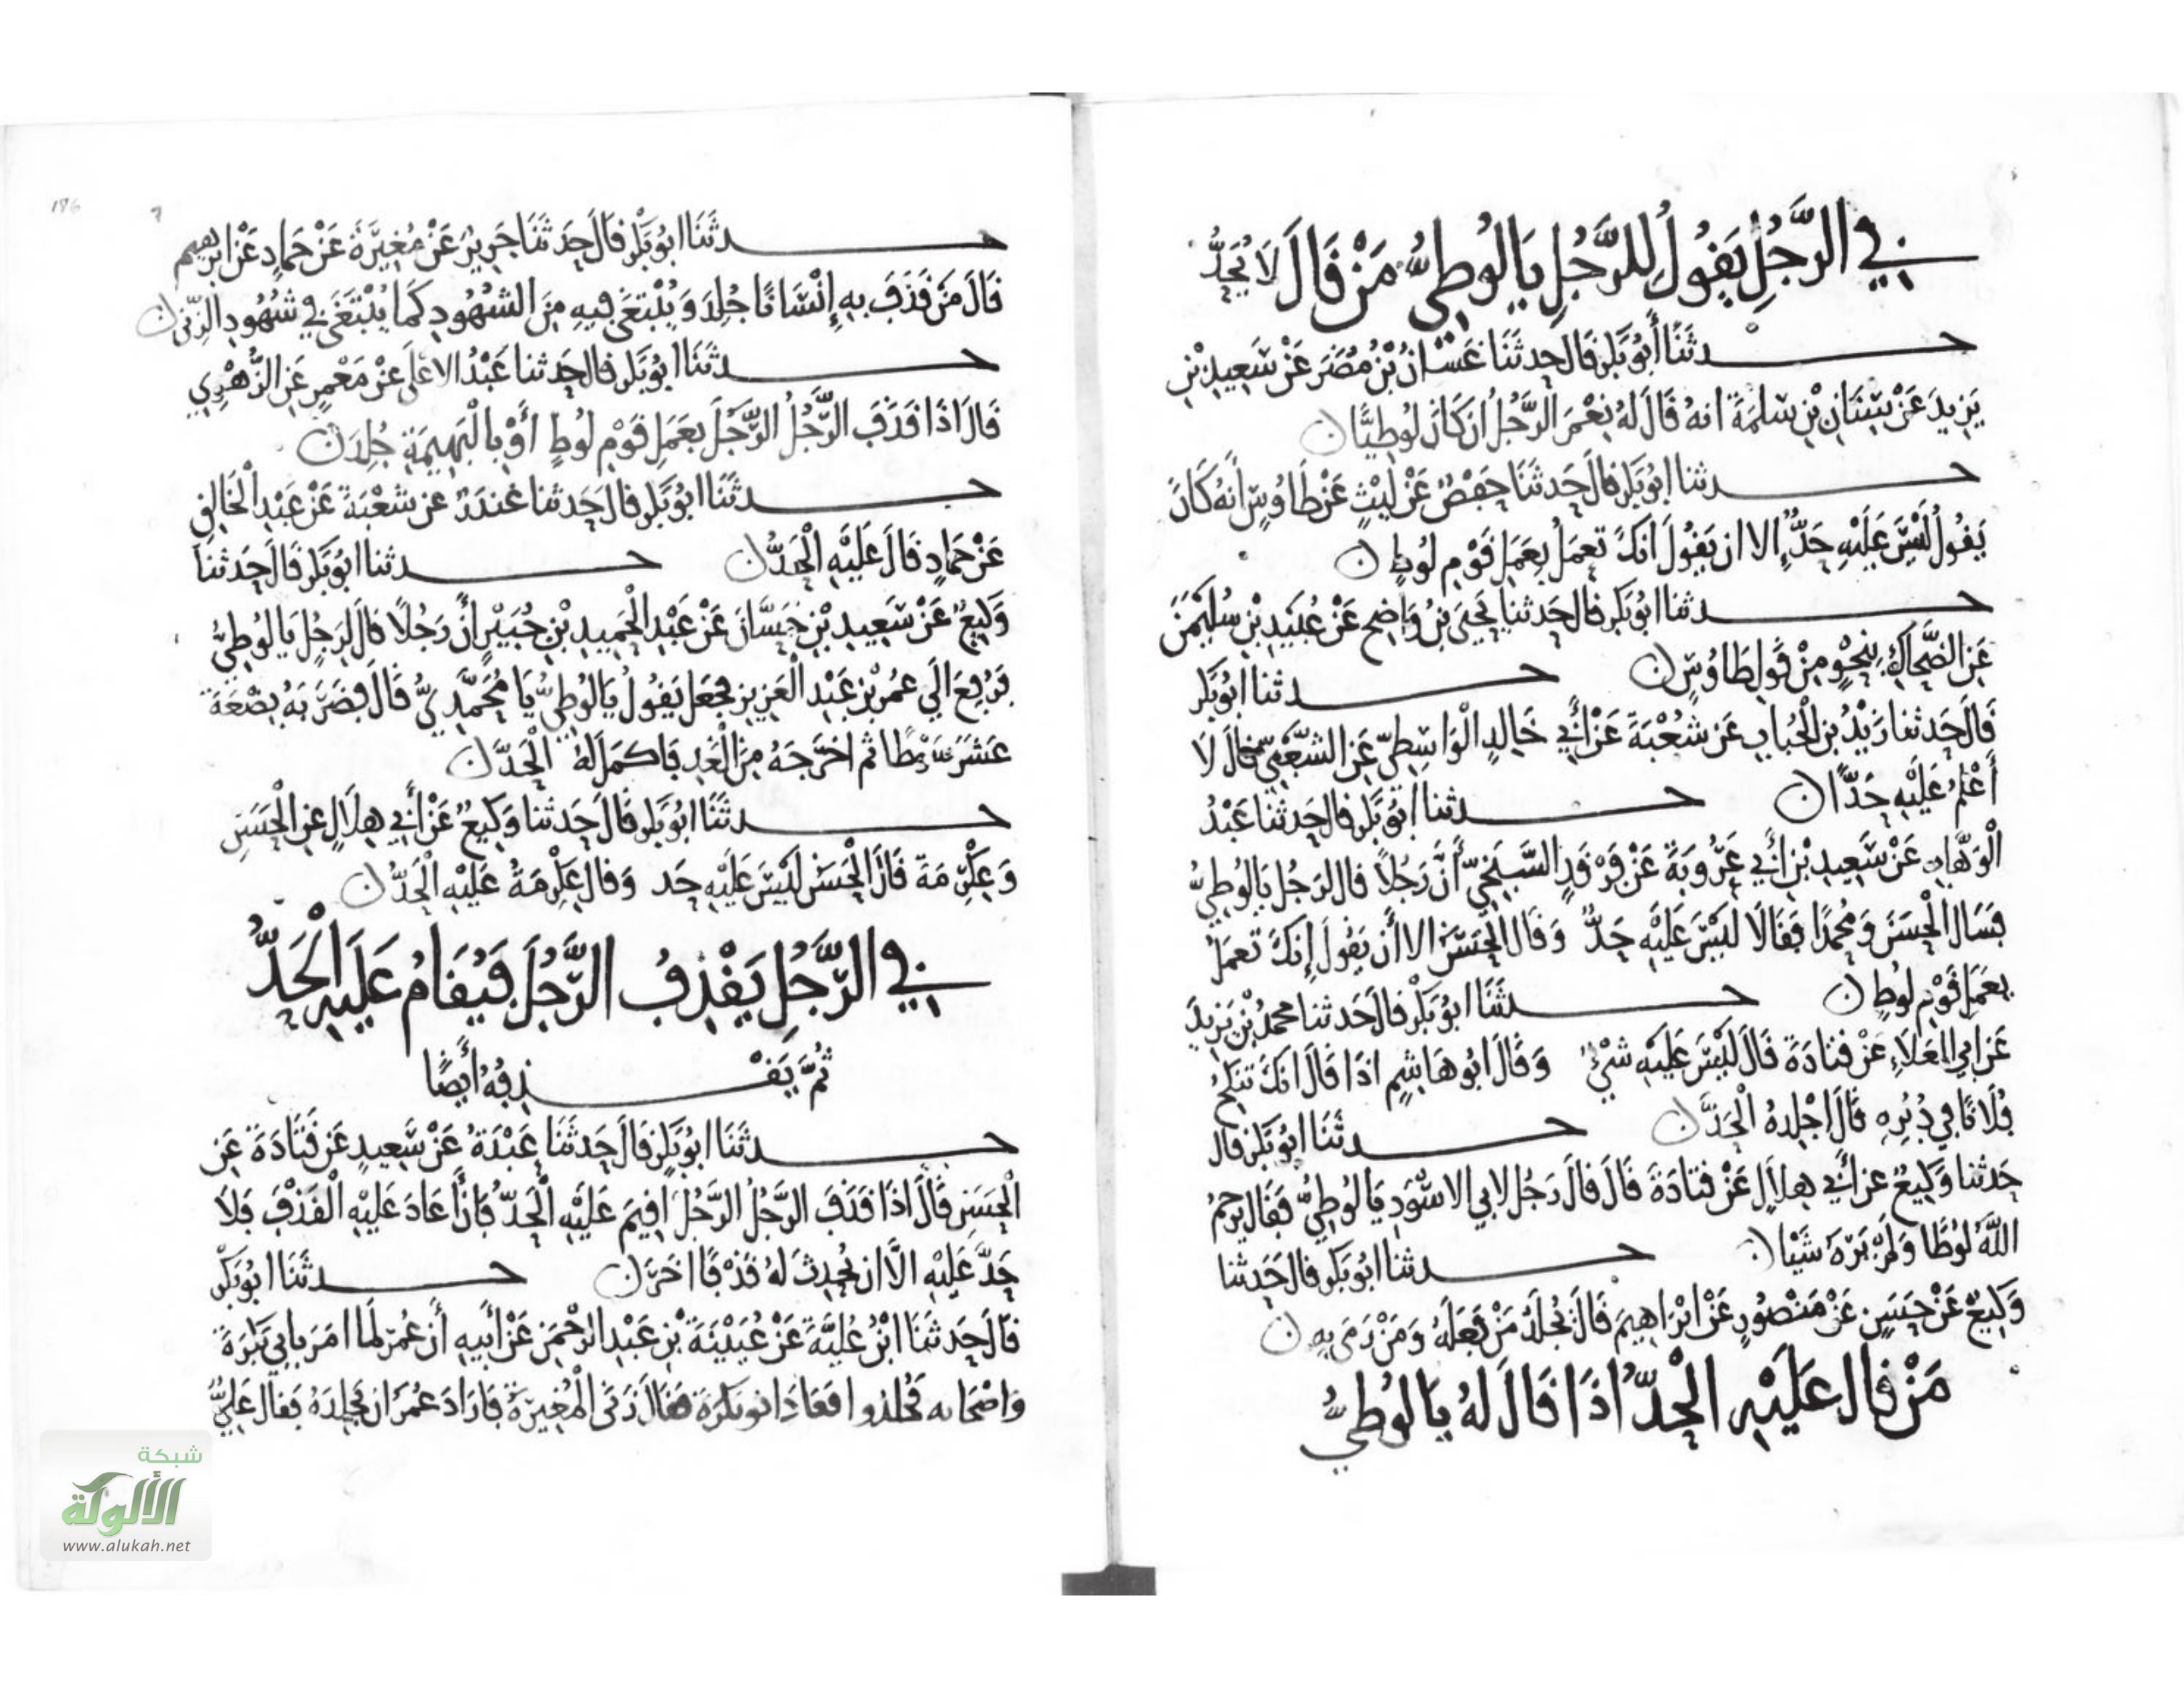 في الرَّجُلِ يَقُولُ للرَّجُلِ يَا لُوطِيُّ مَنْ قَالَ لَا يُحَدُّ
حدثَنَا أَبُو بَكْرٍ قال حدثَنَا غَسَّانُ بْنُ مُضَرَ عَنْ سَعِيدِ بْنِ
يَزِيدَ عَنْ سِنَانِ بْنِ سَلَمَةَ انهُ قَالَ لَهُ نِعْمَ الرَّجُلُ ان كَانَ لُوطِيًّا
حدثنا ابُو بَكْرٍ قال حَدثَنَا حَفْصٌ عَنْ لَيْثٍ عَنْ طَاوُسٍ أَنهُ كَانَ
يَقُولُ لَيْسَ عَلَيْهِ حَدٌّ الا ان يَقُولَ انكَ تعمَلُ بِعَمَلِ قَوْمِ لُوطٍ
حدثنا ابُو بَكرٍ قال حَدثنا يَحْيَى بْنُ وَاضِحٍ عَنْ عُبَيْدِ بْنِ سُلَيْمَنَ
عَنِ الضَّحَّاكِ بِنَحْوٍ مِنْ قَولِ طَاوُسٍ حدثنا ابُو بَكْرٍ
قَالَ حَدثنا زَيْدُ بْنُ الْحُبَابِ عَن شُعْبَةَ عَنْ أَبِي خَالِدٍ الْوَاسِطِيِّ عَنِ الشَّعْبِيِّ قالَ لَا
أَعْلَمُ عَلَيْهِ حَدًّا حدثنا ابُو بَكْرٍ قال حَدثنا عَبْدُ
الْوَهَّابِ عَنْ سَعِيدِ بْنِ أَبِي عَرُوبَةَ عَنْ فَرْقَدٍ السَّبَخِيِّ أَنَّ رَجُلاً قال لرَجُل يَا لُوطِيُّ
فَسَالَ الْحَسَنَ وَمُحمَّدًا فَقَالَا لَيْسَ عَلَيْهِ حَدٌّ وَقَال الحَسَنُ الا أَن يَقُولَ إِنكَ تَعمَلُ
بِعَمَلِ قَوْمِ لُوطٍ حدثَنَا ابُو بَكْرٍ قالَ حَدثنا محمدُ بْنُ يَزِيدَ
عَن ابي الْعَلَاءِ عَنْ قتَادَةَ قَالَ لَيْسَ عَلَيْهِ شَيْءٌ وَقَالَ ابُو هَاشِمٍ اذَا قَالَ انكَ تَنكِحُ
فُلَانًا فِي دُبُرِهِ قَالَ اجْلِدهُ الْحَدَّ حدثَنَا ابُو بَكْرٍ قال
حَدثنا وَكِيعٌ عن أَبِي هِلَالٍ عَنْ قتَادَةَ قَالَ قالَ رَجُل لابي الاسْوَدِ يَا لُوطِيُّ فَقَال يرحمُ
اللَّهُ لُوطًا وَلَمْ يَرَهُ شَيْئا حدثنا ابُو بَكرٍ قالَ حَدثنا
وَكِيعٌ عَنْ حَسَنٍ عَنْ مَنْصُورٍ عَنْ ابْرَاهِيمَ قَالَ يُجلَدُ مَنْ فَعَلَهُ وَمَنْ رَمَى بِهِ
مَنْ قال عَلَيْهِ الْحَدُّ اذَا قَالَ لَهُ يَا لُوطِيُّ
186
حدثَنَا ابُو بَكْرٍ قَالَ حَدثَنَا جَرِيرٌ عَنْ مُغِيرَةَ عَنْ حَمادٍ عَنْ ابرهيم
قَالَ مَن قَذَفَ بِهِ إِنْسَانًا جُلِدَ وَيُبْتَغَى فِيهِ مِنَ الشُهُودِ كَمَا يُبْتَغَى فِي شُهُودِ الزِّنَى
حدثَنَا ابُو بَكْرٍ قال حَدثنا عَبْدُ الاعْلَى عَنْ مَعْمَرٍ عَنِ الزُّهْرِي
قَالَ اذَا قَذَفَ الرَّجُلُ الرَّجُلَ بِعَمَلِ قَوْمِ لُوطٍ أَوْ بِالْبَهِيمَةِ جُلِدَ
حدثَنَا ابُو بَكْرٍ قال حَدثنا غندَرٌ عن شُعْبَةَ عَنْ عَبْدِ الْخَالِقِ
عَنْ حَمادٍ قَالَ عَلَيْهِ الْحَدُّ حدثنا ابُو بَكْرٍ قَالَ حَدثنَا
وَكِيعٌ عَنْ سَعِيدِ بْنِ حَسَّانَ عَنْ عَبْدِ الْحَمِيدِ بْنِ جُبَيْرٍ أَنَّ رَجُلًا قَالَ لرَجُلٍ يا لُوطِيُّ
فَرُفِعَ الَى عُمَرَ بْنِ عَبْدِ الْعَزِيزِ فجَعلَ يَقُولُ يَا لُوطِيُّ يَا مُحَمَّدِيُّ قَالَ فضَرَبَهُ بِضْعَةَ
عَشَرَ سَوْطًا ثم اخرَجَهُ مِنَ الْغَدِ فَاكمَلَ لَهُ الْحَدَّ
حدثَنَا ابُو بَكْرٍ قَالَ حَدثنا وَكِيعٌ عَنْ أَبِي هِلَالٍ عَنِ الْحَسَنِ
وَعِكْرِمَةَ قَالَ الْحَسَنُ لَيْسَ عَلَيْهِ حَد وَقَال عِكْرِمَةُ عَلَيْهِ الْحَدُّ
في الرَّجُلِ يَقْذِفُ الرَّجُلَ فَيُقَامُ عَلَيهِ الْحَدُّ
ثُمَّ يَقْذِفُهُ أَيْضًا
حدثَنَا ابُو بَكْرٍ قَالَ حَدثَنَا عَبْدَةُ عَنْ سَعِيدٍ عَن قَتَادَةَ عَنِ
الْحَسَنِ قَالَ اذَا قَذَفَ الرَّجُلُ الرَّجُلَ اقِيمَ عَلَيْهِ الْحَدُّ فَاِنْ أَعَادَ عَلَيْهِ الْقَذْفَ فَلَا
حَدَّ عَلَيْهِ الَّا ان يُحدِثَ لَهُ قَذْفًا اخَرَ حدثَنَا ابُو بَكْرٍ
قَالَ حَدثَنَا ابْنُ عُلَيَّةَ عَنْ عُيَيْنَةَ بْنِ عَبْدِ الرَّحْمَنِ عَنْ أَبِيهِ أَن عُمَرَ لَما امَرَ بِابِي بَكْرَةَ
وَاصْحَابه فَجُلدُوا فعَادَ ابو بَكْرَةَ فقَالَ زَنَى الْمُغِيرَةُ فَارَادَ عُمَرُ ان يَجلِدَهُ فقال عَلِيٌّ
شبكة
الألوكة
www.alukah.net